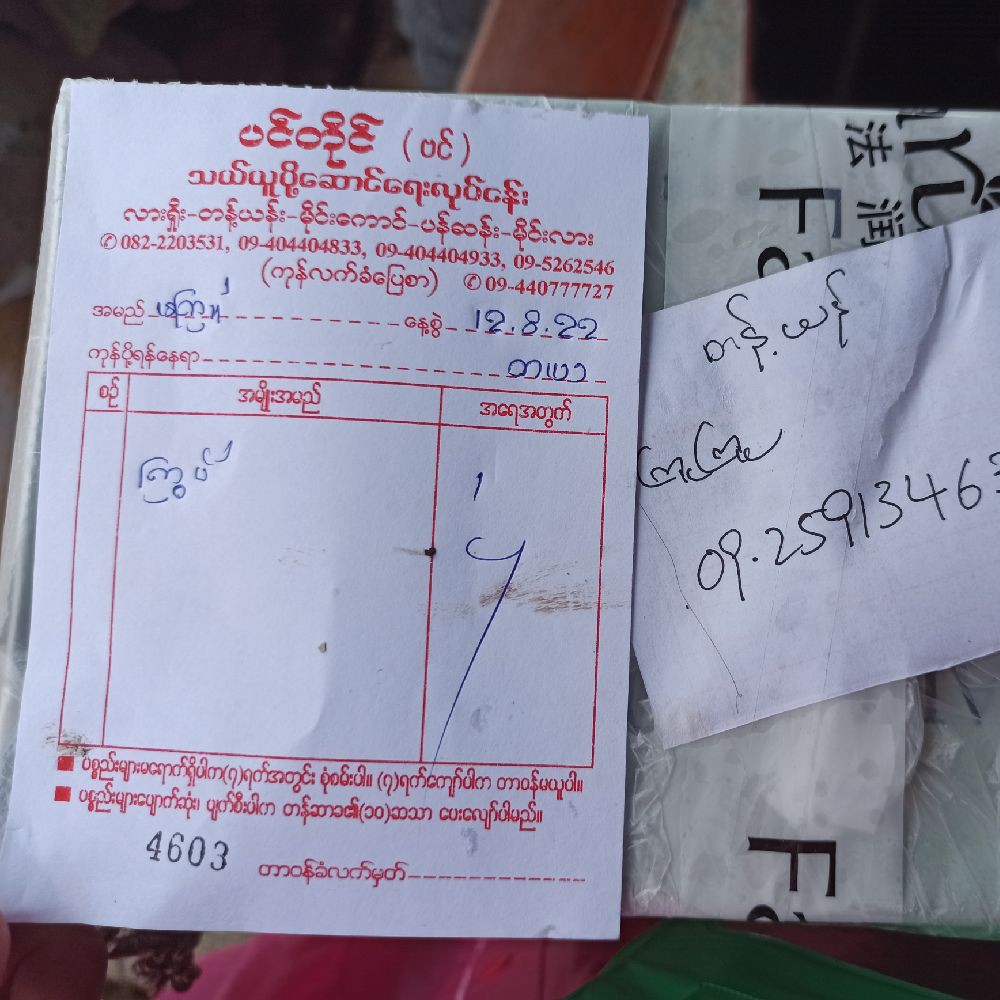 ပင်တိုင် (ဗင်)
သယ်ယူပို့ဆောင်ရေးလုပ်ငန်း
လားရှိုး-တန့်ယန်း-မိုင်းကောင်-ပန်ဆန်း-မိုင်းလား
✆ 082-2203531, 09-404404833, 09-404404933, 09-5262546
(ကုန်လက်ခံပြေစာ) ✆ 09-440777727
အမည်
နေ့စွဲ 12.8.22
ကုန်ပို့ရန်နေရာ
စဉ် အမျိုးအမည် အရေအတွက်
1
■ ပစ္စည်းများမရောက်ရှိပါက(၇)ရက်အတွင်း စုံစမ်းပါ။ (၇)ရက်ကျော်ပါက တာဝန်မယူပါ။
■ ပစ္စည်းများပျောက်ဆုံး၊ ပျက်စီးပါက တန်ဆာခ၏(၁၀)ဆသာ ပေးလျော်ပါမည်။
4603
တာဝန်ခံလက်မှတ်
တန့်ယန်း
09.25913463
法 润